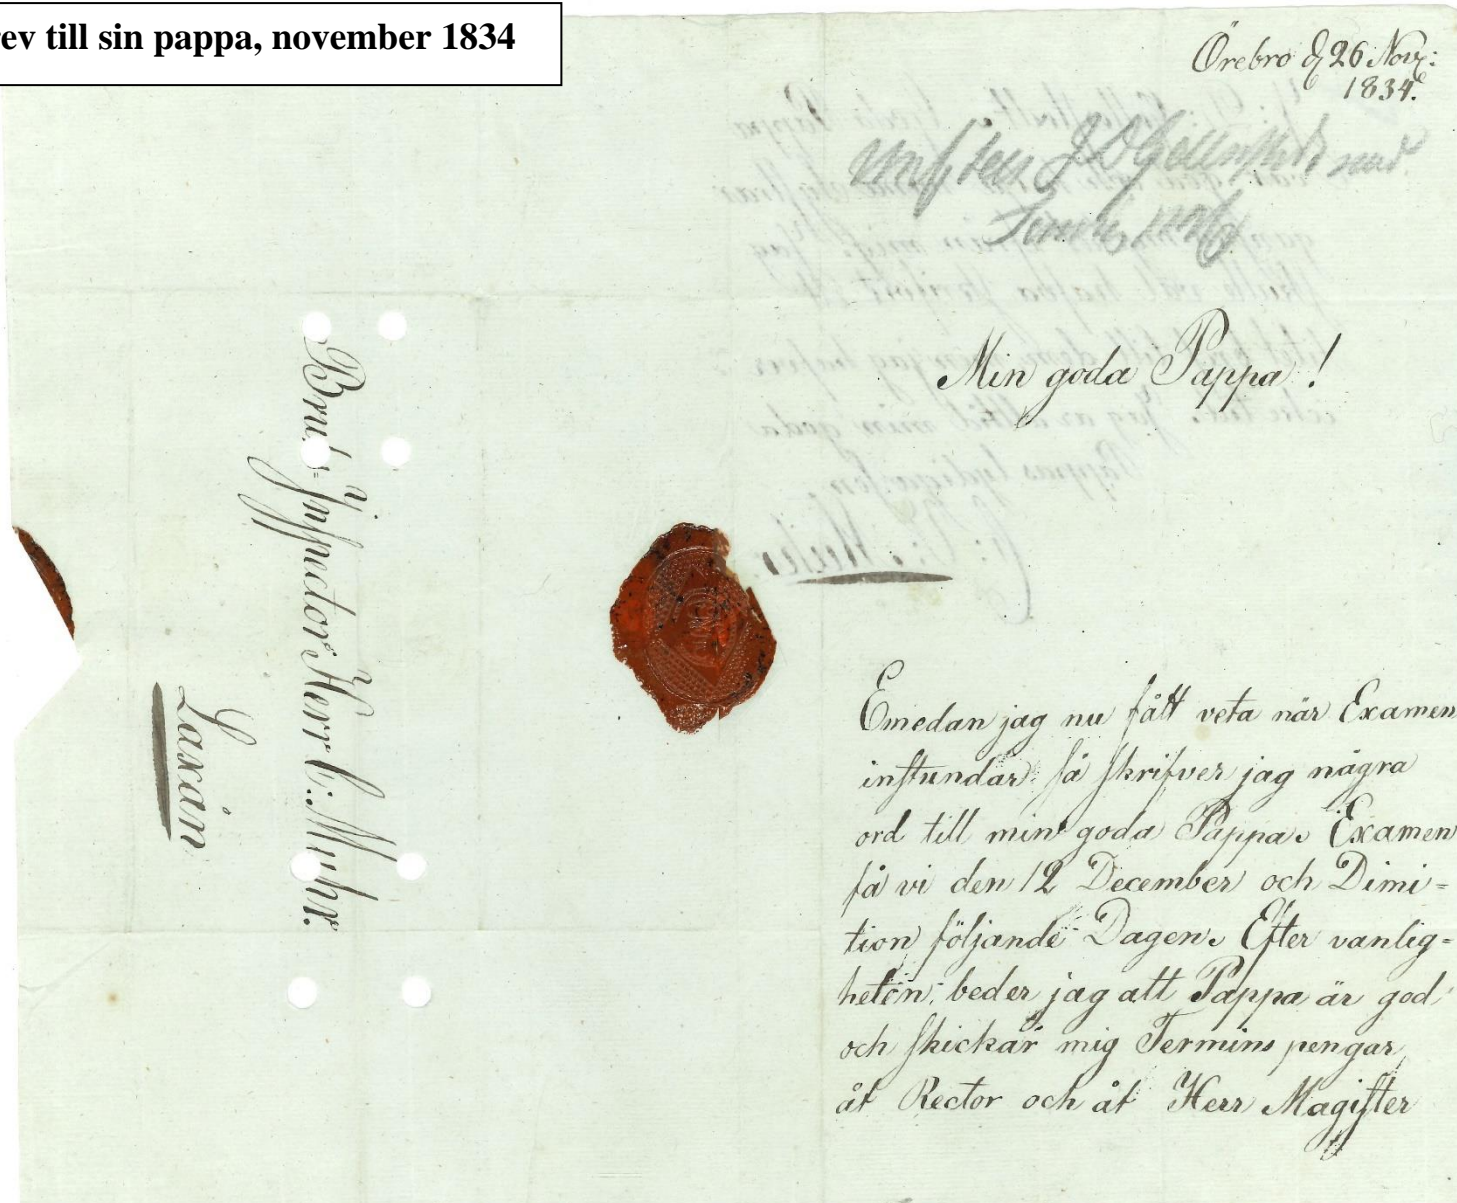 ev till sin pappa, november 1834
Örebro d 26 Nov:
1834.
Min goda Pappa!
Emedan jag nu fått veta när Examen
instundar så skrifver jag några
ord till min goda Pappa. Examen
få vi den 12 December och Dimi=
tion följande Dagen. Efter vanlig=
heten, beder jag att Pappa är god
och skickar mig Termins pengar,
åt Rector och åt Herr Magister
Bruks=Inspector Herr C: Myhr.
Laxån